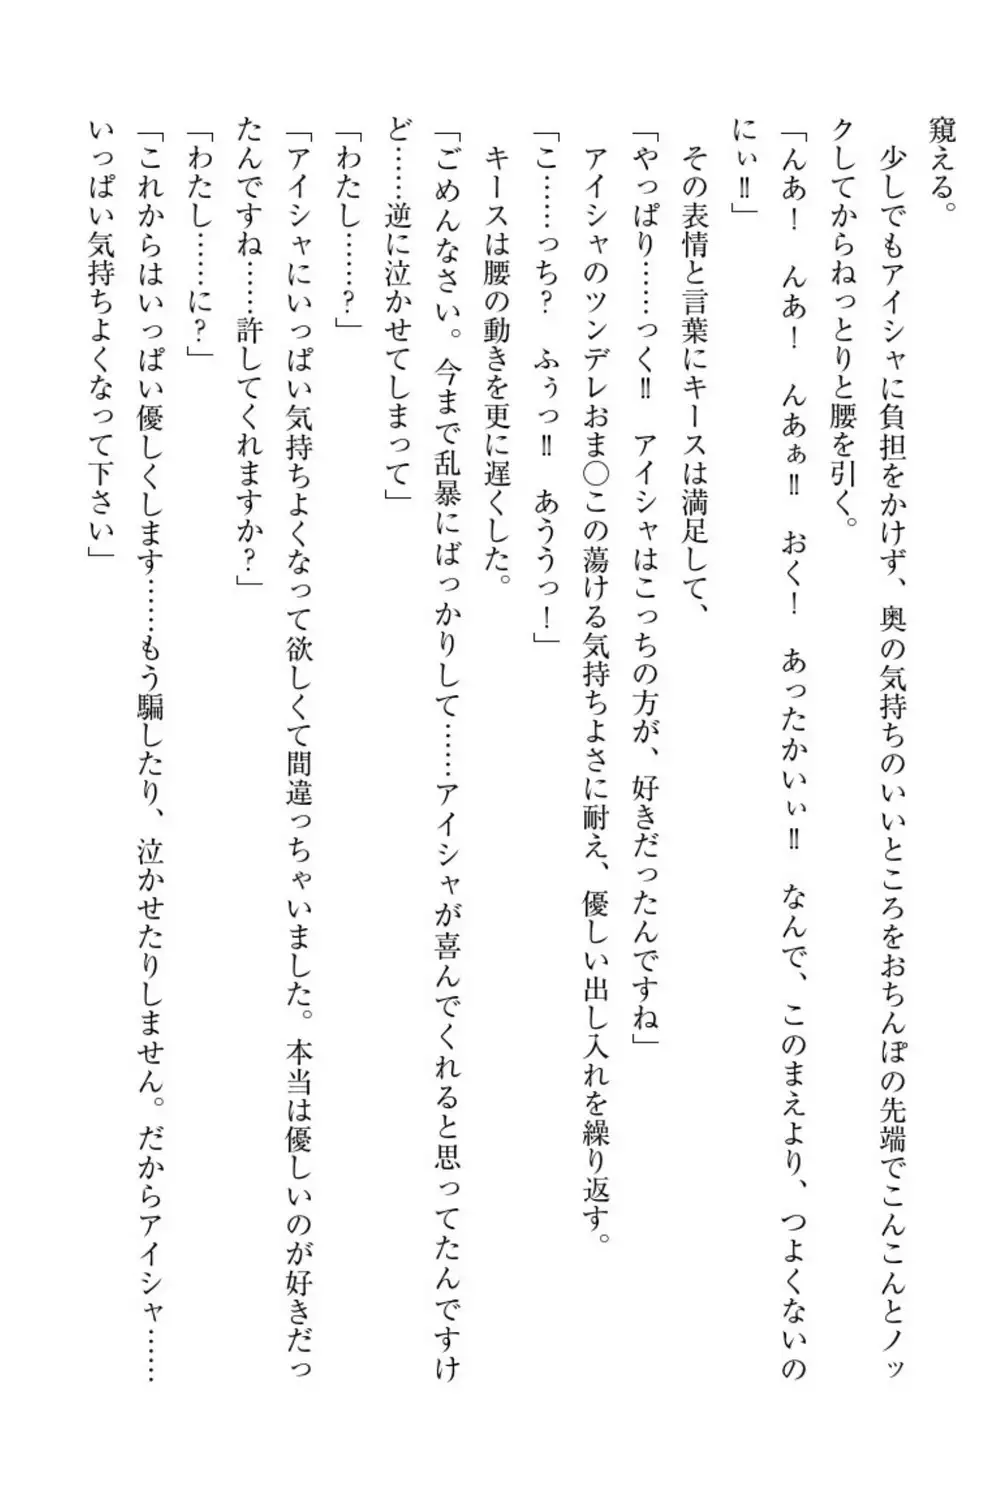 窺える。
　少しでもアイシャに負担をかけず、奥の気持ちのいいところをおちんぽの先端でこんこんとノッ
クしてからねっとりと腰を引く。
「んあ！　んあ！　んあぁ‼　おく！　あったかいぃ‼　なんで、このまえより、つよくないの
にぃ‼」
　その表情と言葉にキースは満足して、
「やっぱり……っく‼　アイシャはこっちの方が、好きだったんですね」
　アイシャのツンデレおま〇この蕩ける気持ちよさに耐え、優しい出し入れを繰り返す。
「こ……っち？　ふぅっ‼　あううっ！」
　キースは腰の動きを更に遅くした。
「ごめんなさい。今まで乱暴にばっかりして……アイシャが喜んでくれると思ってたんですけ
ど……逆に泣かせてしまって」
「わたし……？」
「アイシャにいっぱい気持ちよくなって欲しくて間違っちゃいました。本当は優しいのが好きだっ
たんですね……許してくれますか？」
「わたし……に？」
「これからはいっぱい優しくします……もう騙したり、泣かせたりしません。だからアイシャ……
いっぱい気持ちよくなって下さい」